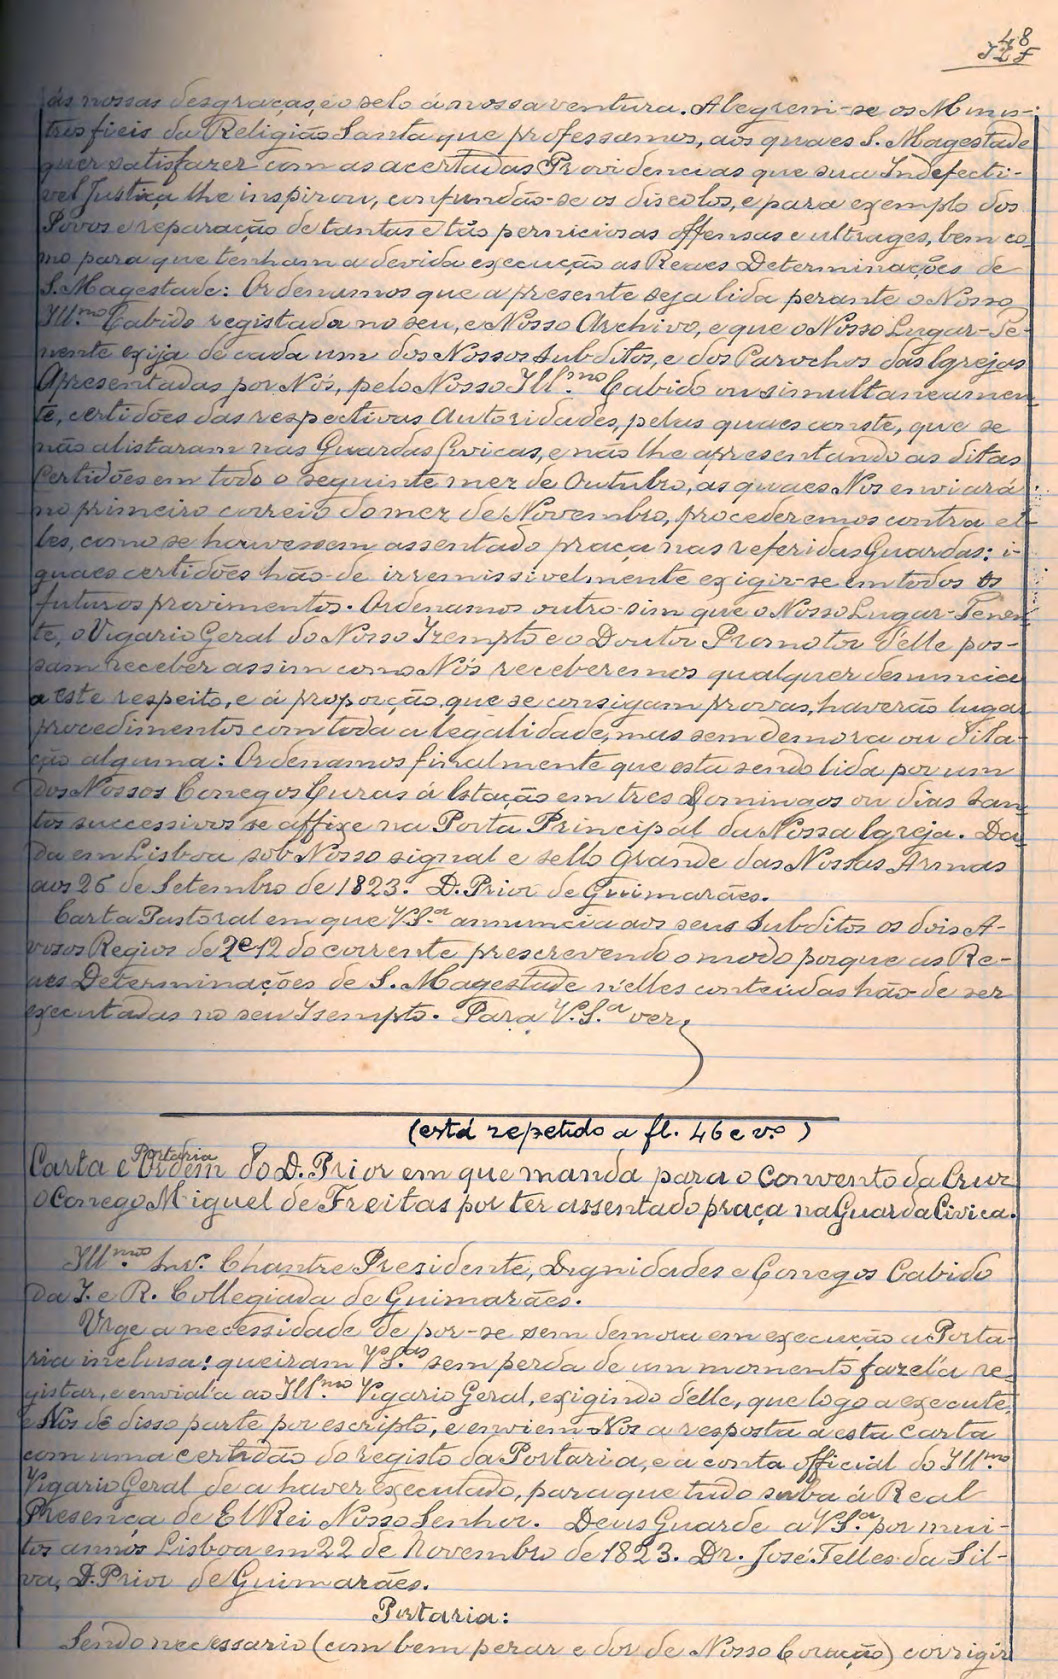 48
ás nossas desgraças, e o selo á nossa ventura. Alegrem-se os Minis-
tros fieis da Religião Santa que professamos, aos quaes S. Magestade
quer satisfazer com as acertadas Providencias que sua Indefecti-
vel Justiça lhe inspirou, confundão-se os discolos, e para exemplo dos
Povos e reparação de tantas e tão perniciosas offensas e ultrages, bem co-
mo para que tenham a devida execução as Reaes Determinações de
S. Magestade: Ordenamos que a presente seja lida perante o Nosso
Ill.mo Cabido registada no seu, e Nosso Archivo, e que o Nosso Lugar-Te-
nente exija de cada um dos Nossos subditos, e dos Parochos das Igrejas
Apresentadas por Nós, pelo Nosso Ill.mo Cabido ou simultaneamen
te, certidões das respectivas Autoridades, pelas quaes conste, que se
não alistaram nas Guardas Civicas, e não lhe apresentando as ditas
Certidões em todo o seguinte mez de Outubro, as quaes Nos enviará
no primeiro correio do mez de Novembro, procederemos contra el-
les, como se houvessem assentado praça nas referidas Guardas: i-
guaes certidões hão-de irremissivelmente exigir-se em todos os
futuros provimentos. Ordenamos outro-sim que o Nosso Lugar-Tenen
te, o Vigario Geral do Nosso Izempto e o Doutor Promotor d'elle pos-
sam receber assim como Nós receberemos qualquer denuncia
a este respeito, e á proporção que se consigam provas, haverão lugar
procedimentos com toda a legalidade, mas sem demora ou dila-
ção alguma: Ordenamos finalmente que esta sendo lida por um
dos Nossos Conegos Curas á Estação em tres Domingos ou dias san
tos successivos se affixe na Porta Principal da Nossa Igreja. Da-
da em Lisboa sob Nosso signal e sello grande das Nossas Armas
aos 26 de Setembro de 1823. D. Prior de Guimarães.
Carta Pastoral em que V.S.a annuncia aos seus subditos os dois A-
visos Regios de 2 e 12 do corrente prescrevendo o modo porque as Re-
aes Determinações de S. Magestade n'elles conteudas hão-de ser
executadas no seu Isempto. Para V.S.a ver,
(está repetido a fl. 46 e v.o)
Portaria
Carta e Ordem do D. Prior em que manda para o Convento da Cruz
o Conego Miguel de Freitas por ter assentado praça na Guarda Civica.
Ill.mo Snr. Chantre Presidente, Dignidades e Conegos Cabido
da I. e R. Collegiada de Guimarães.
Urge a necessidade de por-se sem demora em execução a Porta-
ria inclusa: queiram V.S.as sem perda de um momento fazel'a re-
gistar, e envial'a ao Ill.mo Vigario Geral, exigindo d'elle, que logo a execute,
e Nos dê disso parte por escripto, e enviem-Nos a resposta a esta Carta
com uma certidão do registo da Portaria, e a conta official do Ill.mo
Vigario Geral de a haver executado, para que tudo suba á Real
Presença de El Rei Nosso Senhor. Deus Guarde a V.S.as por mui-
tos annos Lisboa em 22 de Novembro de 1823. Dr. José Telles da Sil-
va, D. Prior de Guimarães.
Portaria:
Sendo necessario (com bem pezar e dor de Nosso Coração) corrigir